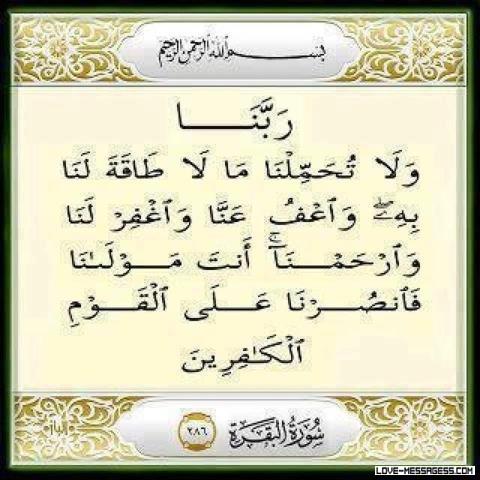 بسم الله الرحمن الرحيم
رَبَّنَا
وَلَا تُحَمِّلْنَا مَا لَا طَاقَةَ لَنَا
بِهِۦۖ وَٱعْفُ عَنَّا وَٱغْفِرْ لَنَا
وَٱرْحَمْنَآۚ أَنتَ مَوْلَىٰنَا
فَٱنصُرْنَا عَلَى ٱلْقَوْمِ
ٱلْكَٰفِرِينَ
سُورَةُ البَقَرَة ٢٨٦
LOVE-MESSAGESS.COM